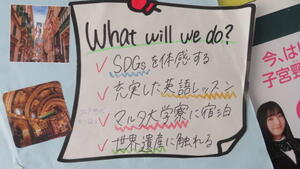 What will we do?
✓ SDGsを体感する
✓ 充実した英語レッスン
✓ マルタ大学寮に宿泊
✓ 世界遺産に触れる
今、は
子宮